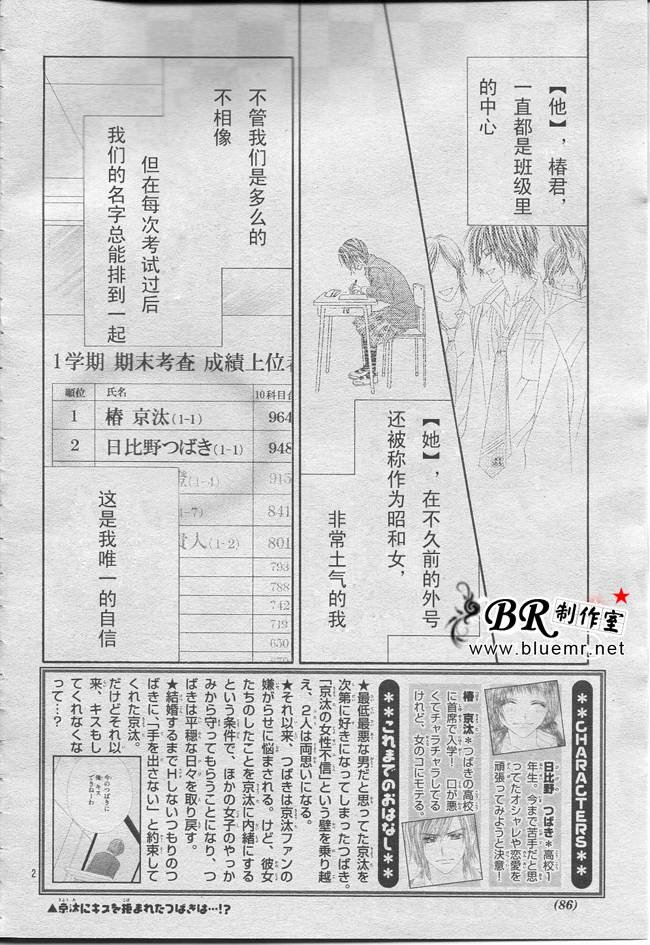 【他】，椿君，
一直都是班级里
的中心
不管我们是多么的
不相像
但在每次考试过后
我们的名字总能排到一起
1学期 期末考査 成績上位者
順位 氏名 10科目合
1 椿 京汰(1-1) 964
2 日比野つばき(1-1) 948
(1-4) 915
1-7) 841
貴人(1-2) 801
793
788
742
719
650
【她】，在不久前的外号
还被称作为昭和女，
非常土气的我
这是我唯一的自信
BR制作室
www.bluemr.net
**CHARACTERS**
日比野 つばき＊高校1
年生。今まで苦手だと思
ってたオシャレや恋愛を
頑張ってみようと決意！
椿 京汰＊つばきの高校
に首席で入学！ 口が悪
くてチャラチャラしてる
けれど、女のコにモテる。
**これまでのおはなし**
★最低最悪な男だと思ってた京汰を
次第に好きになってしまったつばき。
「京汰の女性不信」という壁を乗り越
え、2人は両思いになる。
★それ以来、つばきは京汰ファンの
嫌がらせに悩まされる。けど、彼女
たちのしたことを京汰に内緒にする
という条件で、ほかの女子のやっか
みから守ってもらうことになり、つ
ばきは平穏な日々を取り戻す。
★結婚するまでHしないつもりのつ
ばきに、「手を出さない」と約束して
くれた京汰。
だけどそれ以
来、キスもし
てくれなくな
って…？
今のつばきに
俺 キス
できねーわ
▲京汰にキスを拒まれたつばきは…!?
2
(86)